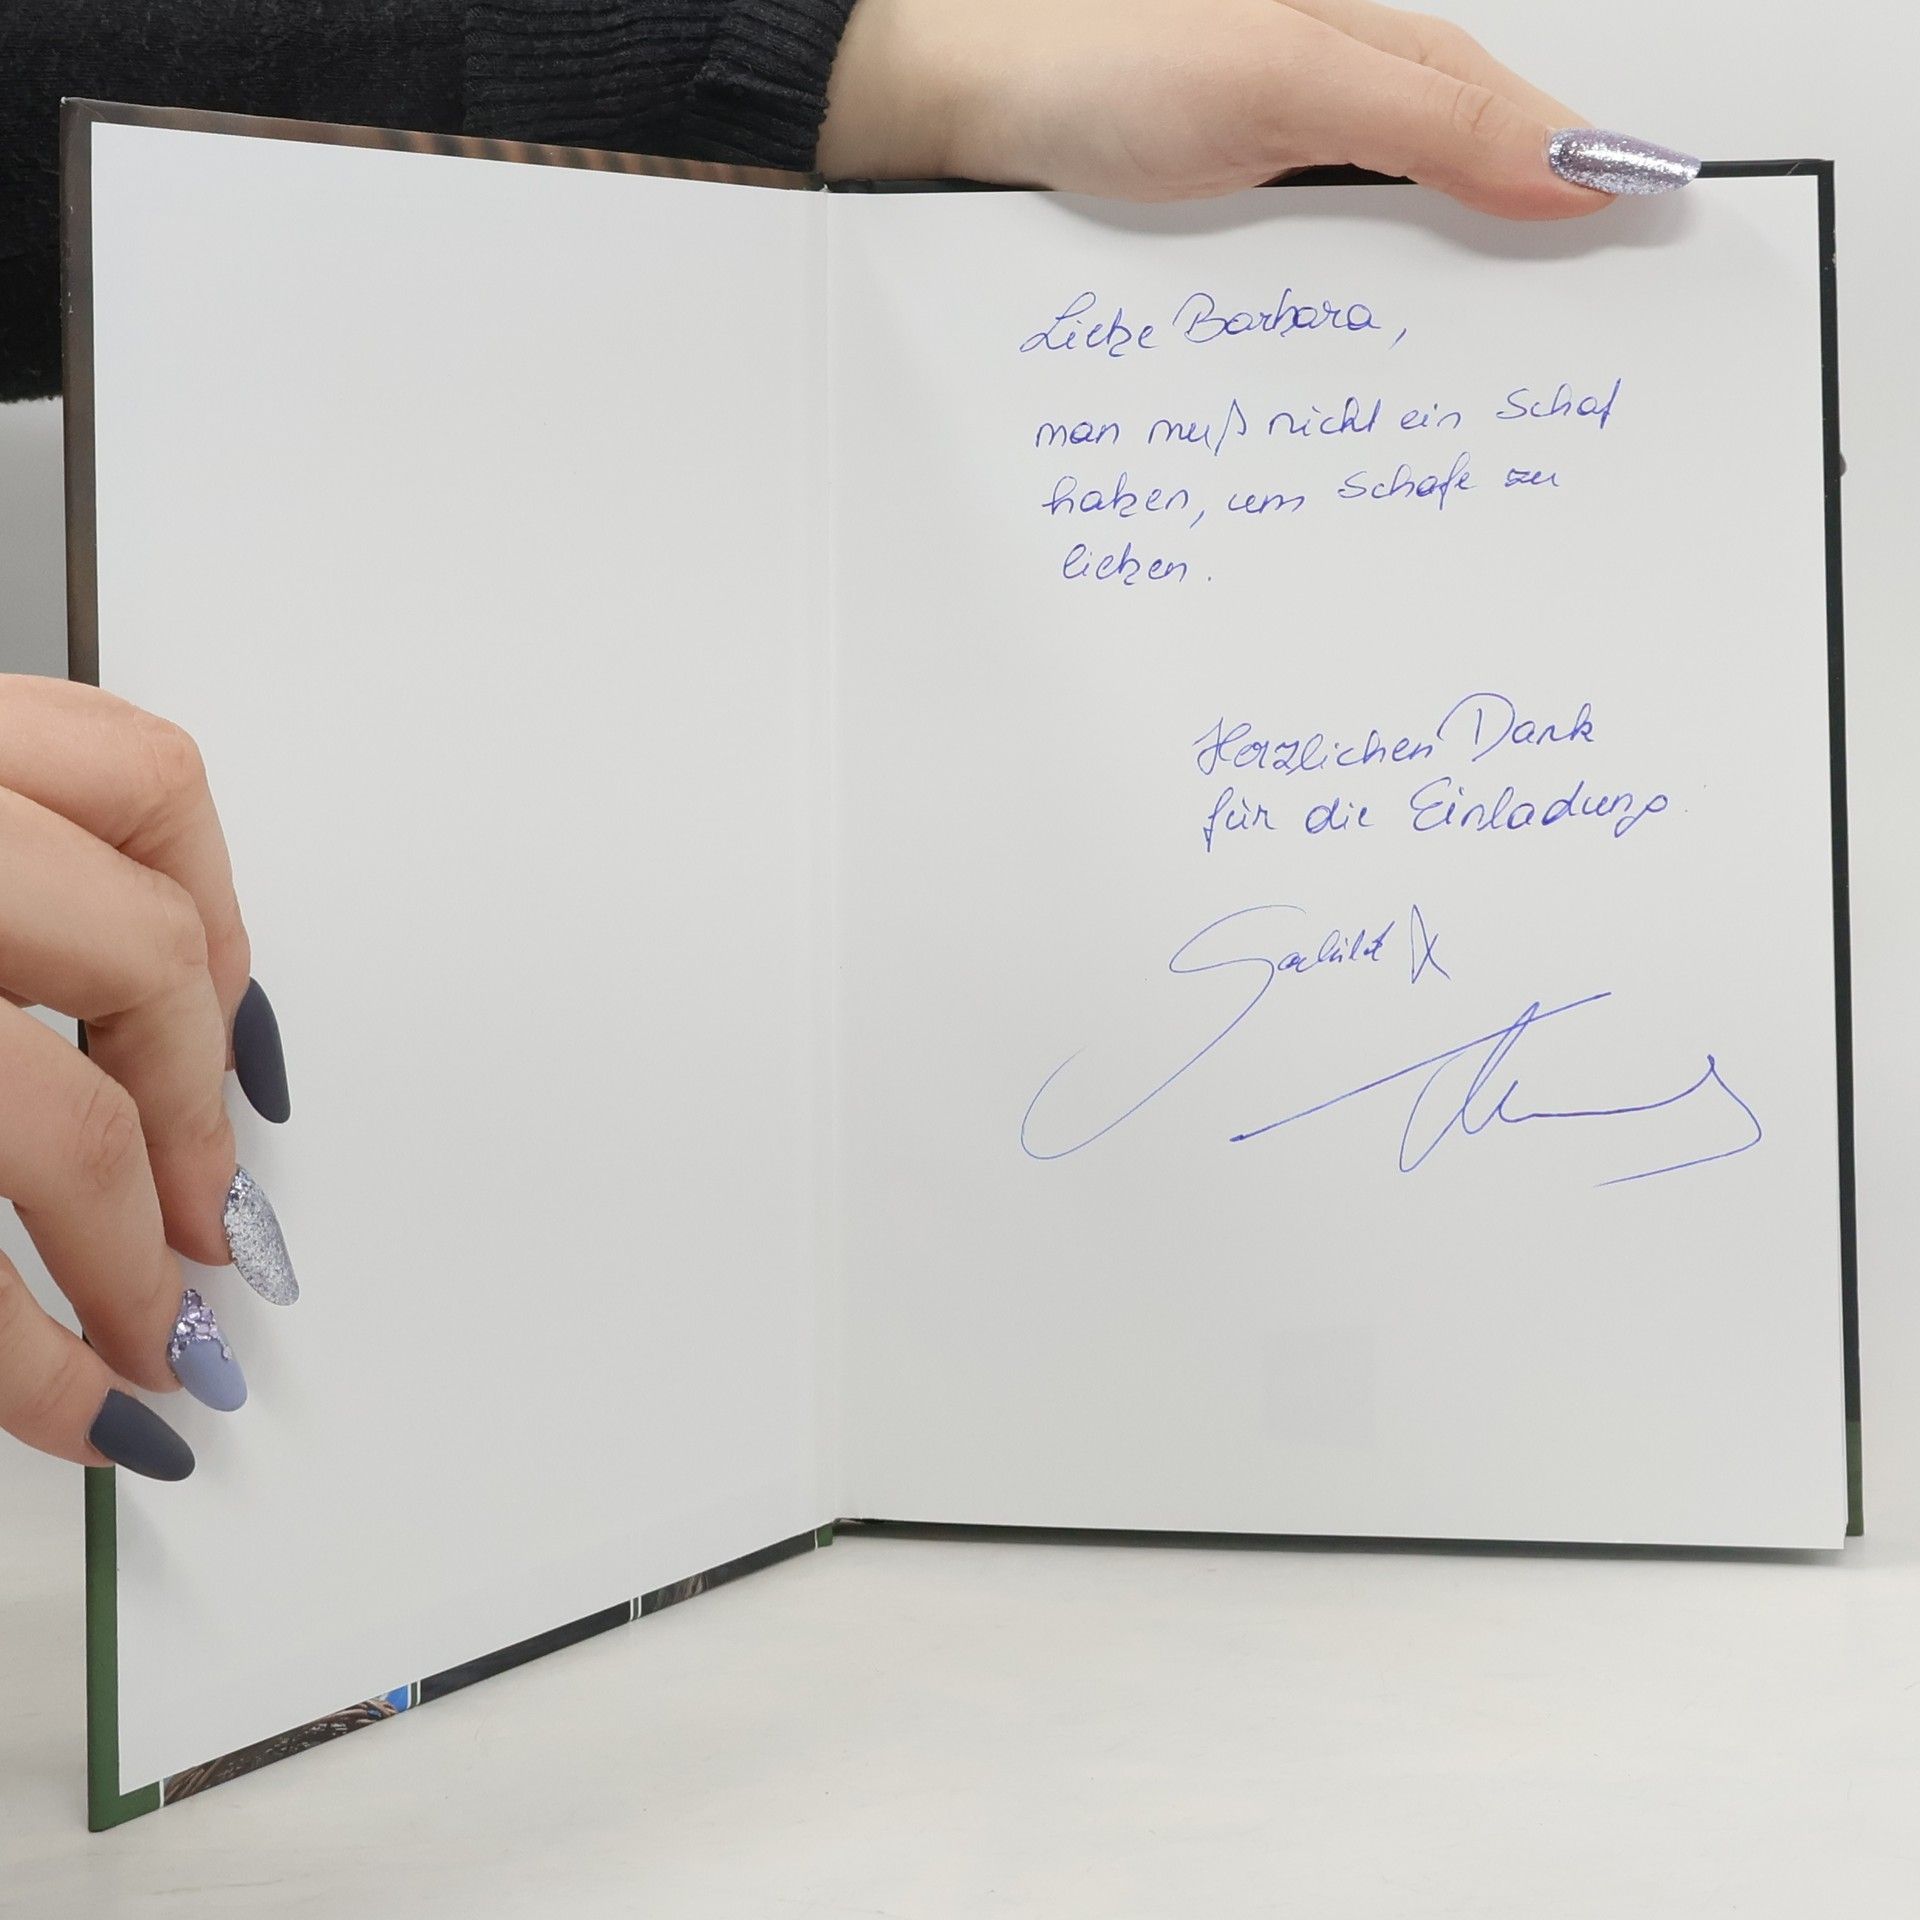 Liebe Barbara,
man muß nicht ein Schaf
haben, um Schafe zu
lieben.
Herzlichen Dank
für die Einladung